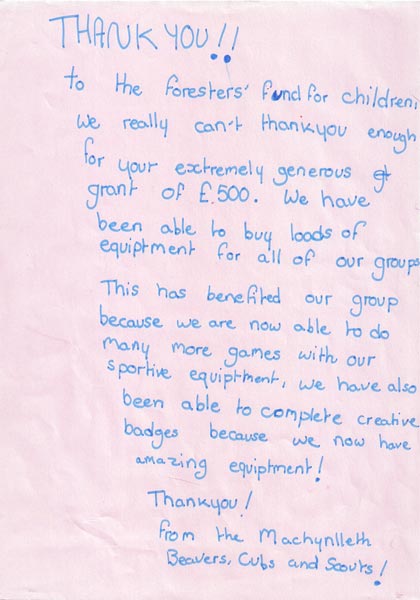 THANK YOU!!
to the foresters' fund for children,
we really can't thankyou enough
for your extremely generous
grant of £500. We have
been able to buy loads of
equiptment for all of our groups
This has benefited our group
because we are now able to do
many more games with our
sportive equiptment, we have also
been able to complete creative
badges because we now have
amazing equiptment!
Thankyou!
from the Machynlleth
Beavers, Cubs and Scouts!